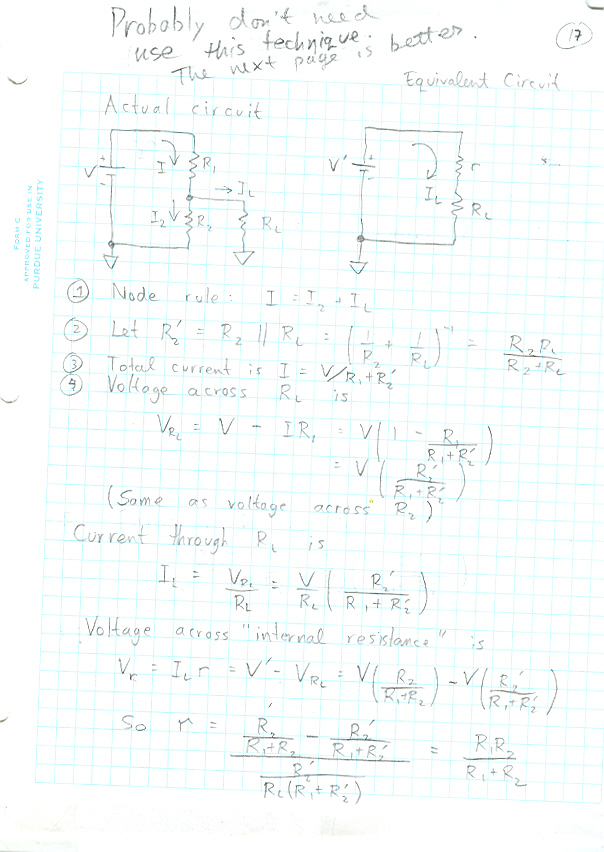 Probably don't need
use this technique.
The next page is better.
17
Equivalent Circuit
Actual circuit
V + - I R₁ → I_L I₂ R₂ R_L
V' + - r I_L R_L
FORM C
APPROVED FOR USE IN
PURDUE UNIVERSITY
① Node rule: I = I₂ + I_L
② Let R₂' = R₂ || R_L = (1/R₂ + 1/R_L)⁻¹ = R₂R_L/(R₂+R_L)
③ Total current is I = V/R₁+R₂'
④ Voltage across R_L is
V_RL = V - IR₁ = V(1 - R₁/(R₁+R₂'))
= V(R₂'/(R₁+R₂'))
(Same as voltage across R₂)
Current through R_L is
I_L = V_RL/R_L = V/R_L (R₂'/(R₁+R₂'))
Voltage across "internal resistance" is
V_r = I_L r = V' - V_RL = V(R₂/(R₁+R₂)) - V(R₂'/(R₁+R₂'))
So r = (R₂'/(R₁+R₂) - R₂'/(R₁+R₂'))/(R₂'/(R_L(R₁+R₂'))) = R₁R₂/(R₁+R₂)